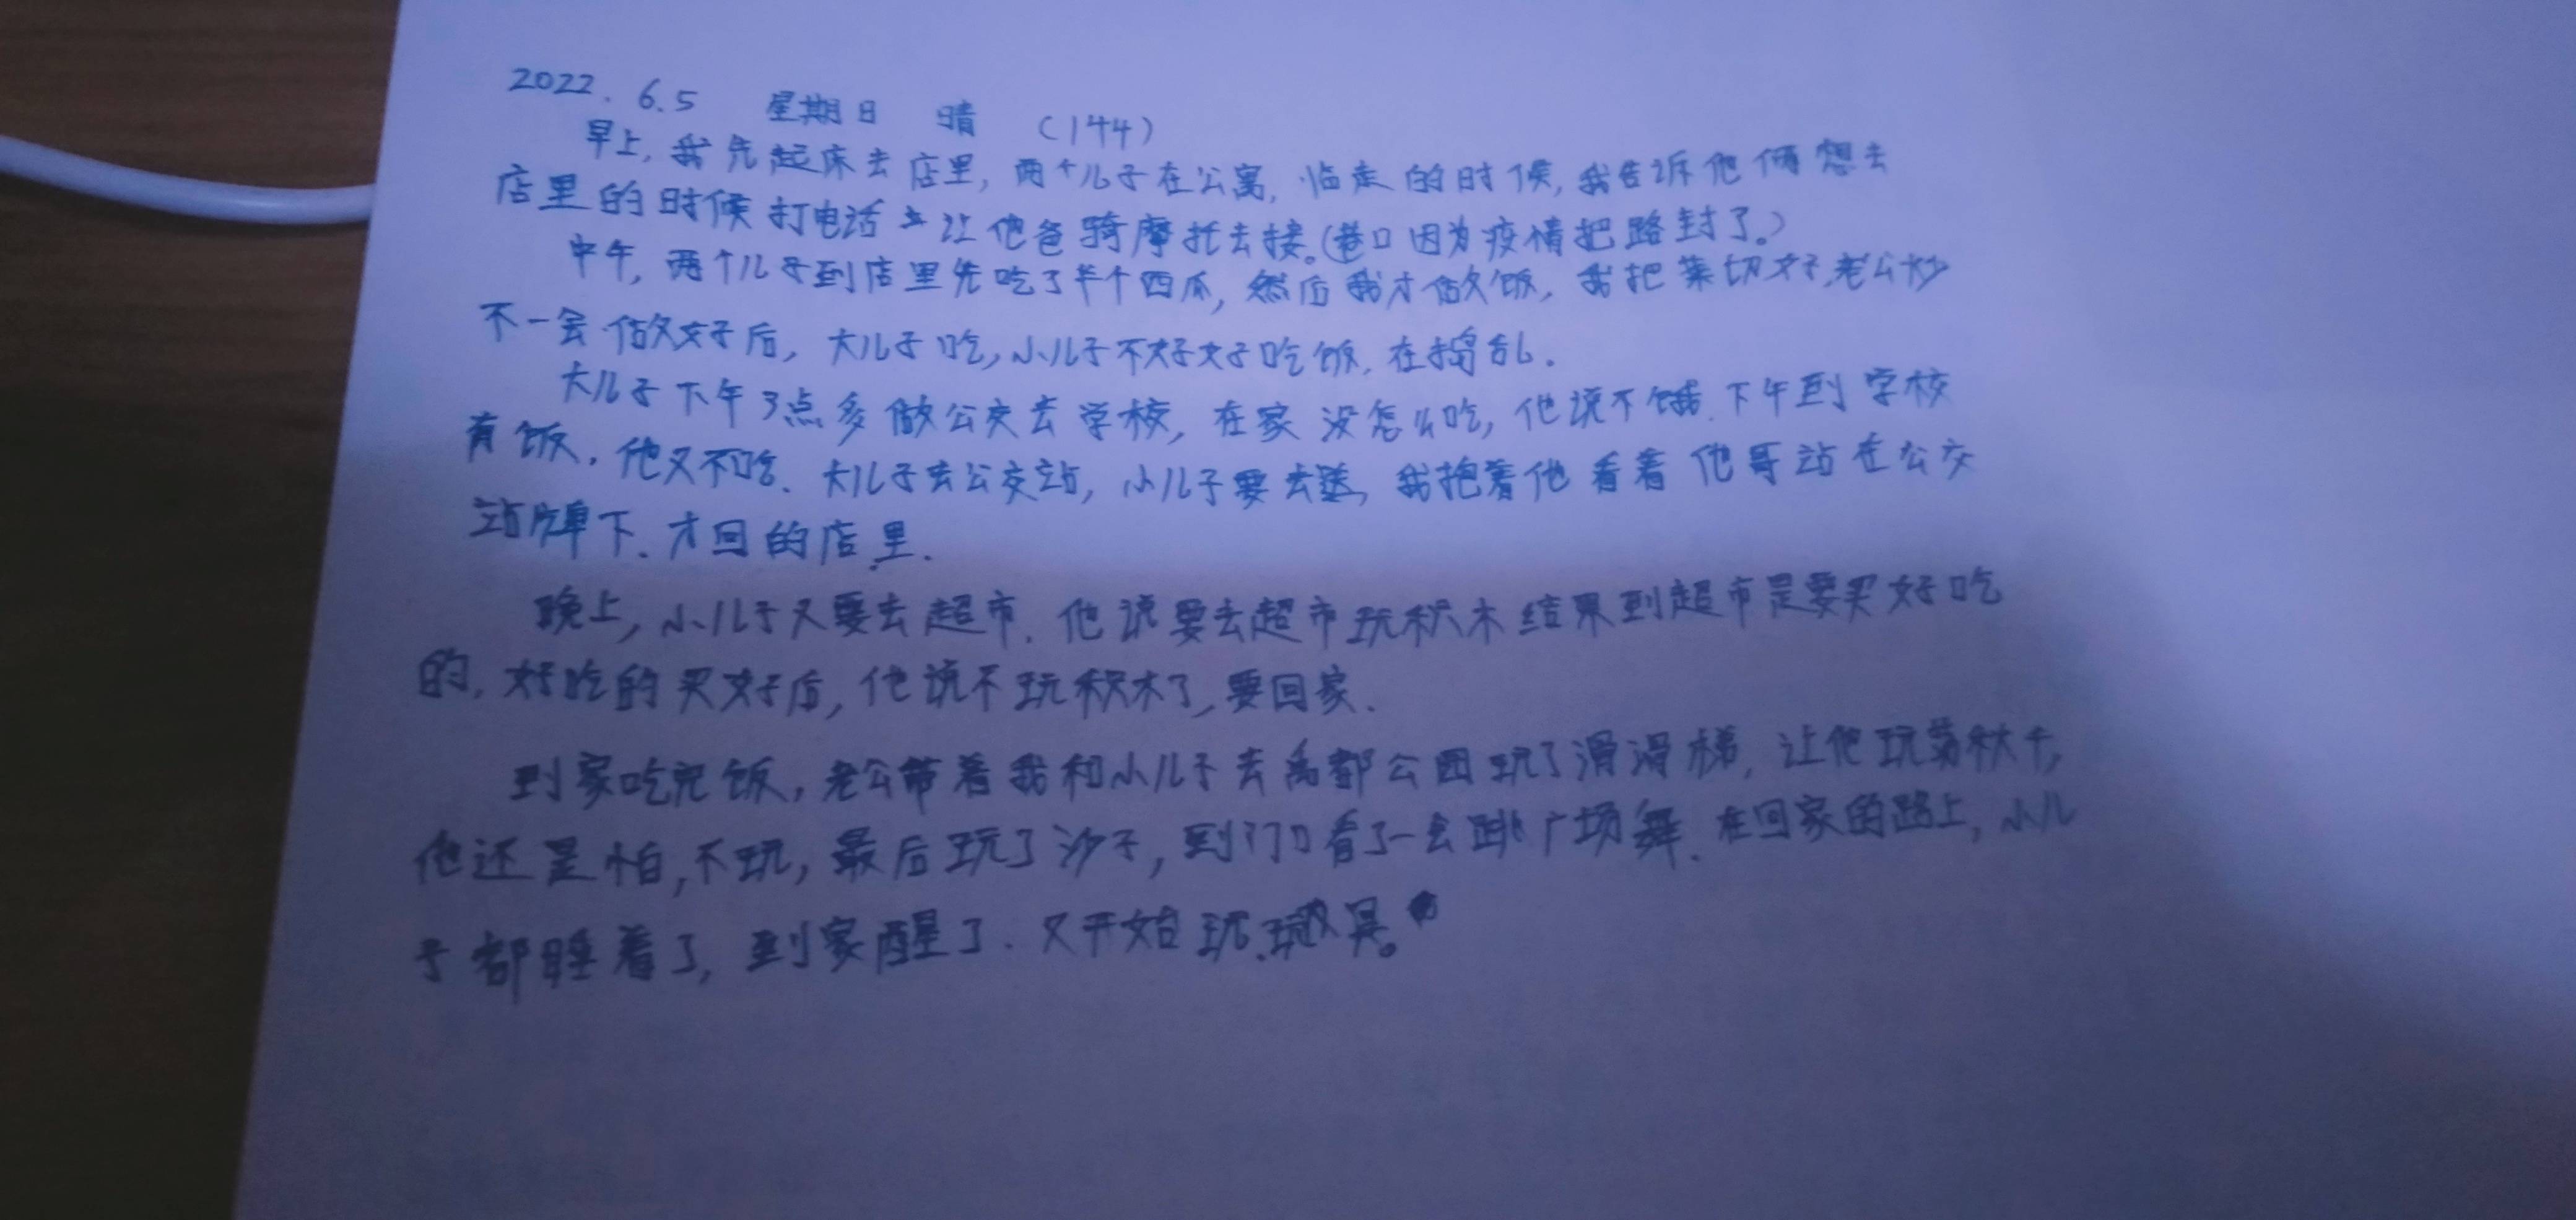 2022. 6.5 星期日 晴 (144)
早上,我先起床去店里,两个儿子在公寓,临走的时候,我告诉他俩想去
店里的时候打电话 让他爸骑摩托去接。(巷口因为疫情把路封了。)
中午,两个儿子到店里先吃了半个西瓜,然后我才做饭,我把菜切好,老公炒
不一会做好后,大儿子吃,小儿子不好好吃饭,在捣乱.
大儿子下午3点多做公交去学校,在家没怎么吃,他说不饿.下午到学校
有饭,他又不吃.大儿子去公交站,小儿子要去送,我抱着他看着他哥站在公交
站牌下.才回的店里.
晚上,小儿子又要去超市.他说要去超市玩积木结果到超市是要买好吃
的,好吃的买好后,他说不玩积木了,要回家.
到家吃完饭,老公带着我和小儿子去禹都公园玩了滑滑梯,让他玩荡秋千,
他还是怕,不玩,最后玩了沙子,到门口看了一会跳广场舞.在回家的路上,小儿
子都睡着了,到家醒了.又开始玩玩具。